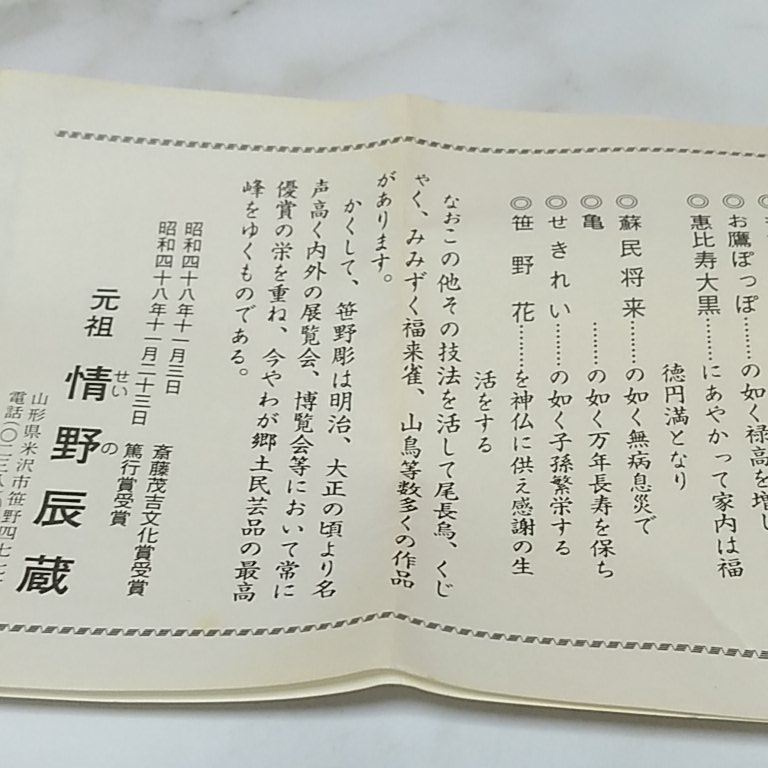 ◎お鷹ぽっぽ……の如く禄高を増し
◎恵比寿大黒……にあやかって家内は福
徳円満となり
◎蘇民将来……の如く無病息災で
◎亀……の如く万年長寿を保ち
◎せきれい……の如く子孫繁栄する
◎笹野花……を神仏に供え感謝の生
活をする
なおこの他その技法を活して尾長鳥、くじ
ゃく、みみずく福来雀、山鳥等数多くの作品
があります。
かくして、笹野彫は明治、大正の頃より名
声高く内外の展覧会、博覧会等において常に
優賞の栄を重ね、今やわが郷土民芸品の最高
峰をゆくものである。
昭和四十八年十一月三日 斎藤茂吉文化賞受賞
昭和四十八年十一月二十三日 篤行賞受賞
元祖 情野辰蔵
せいの
山形県米沢市笹野四七七
電話(〇二三八)